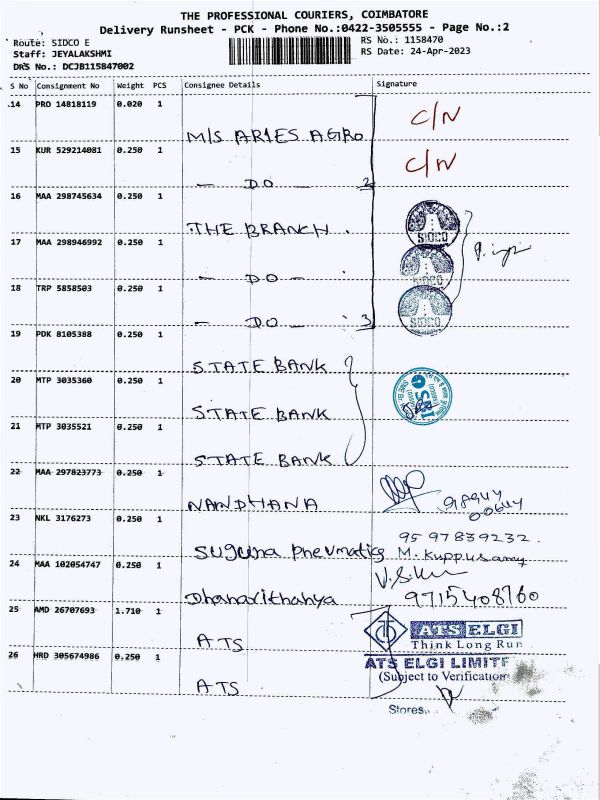 THE PROFESSIONAL COURIERS, COIMBATORE
Delivery Runsheet - PCK - Phone No.:0422-3505555 - Page No.:2
Route: SIDCO E
RS No.: 1158470
Staff: JEYALAKSHMI
RS Date: 24-Apr-2023
DRS No.: DCJB115847002
S No Consignment No Weight PCS Consignee Details Signature
14 PRO 14818119 0.020 1
M/S ARIES AGRO C/N
15 KUR 529214081 0.250 1
— DO — 2 C/N
16 MAA 298745634 0.250 1
THE BRANCH SIDCO
17 MAA 298946992 0.250 1
— DO —
18 TRP 5858503 0.250 1
— DO — 3 SIDCO
19 PDK 8105388 0.250 1
STATE BANK
20 MTP 3035360 0.250 1
STATE BANK
21 MTP 3035521 0.250 1
STATE BANK
22 MAA 297823773 0.250 1
NANDHANA
23 NKL 3176273 0.250 1
9597839232.
Suguna Pneumatics M. Kuppusamy
24 MAA 102054747 0.250 1
9715408760
25 AMD 26707693 1.710 1
ATS ELGI
Think Long Run
ATS
26 HRD 305674986 0.250 1
ATS ELGI LIMITE
(Subject to Verification
ATS
Stores.